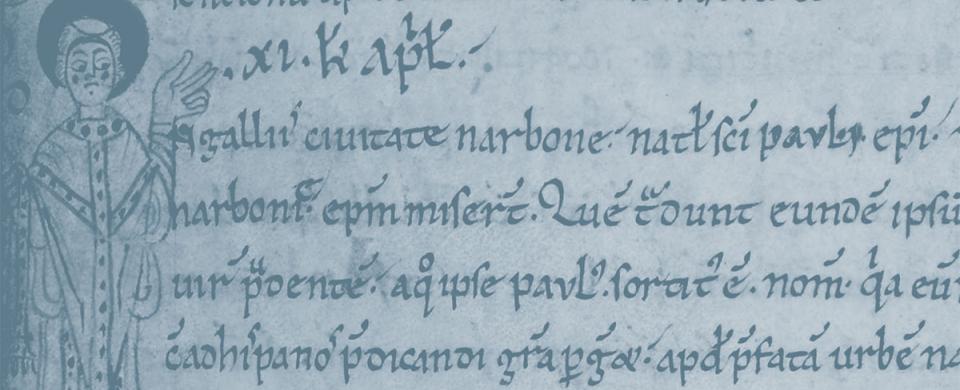 .xi. k̅ apr̅l.
In galliis ciuitate narbone. nat̅l sc̅i pauli. ep̅i.
narbonę. ep̅m miser̅t. Que̅ t̅dunt eunde̅ ipsu̅
uir̅ p̅dente̅. a q̊ ipse paul9. sortit9 e̅. nom̅. q̅a eu̅
c̅ ad hispanos p̅dicandi gr̅a p̲g̅&. ap̅d p̅fata̅ urbe̅ na